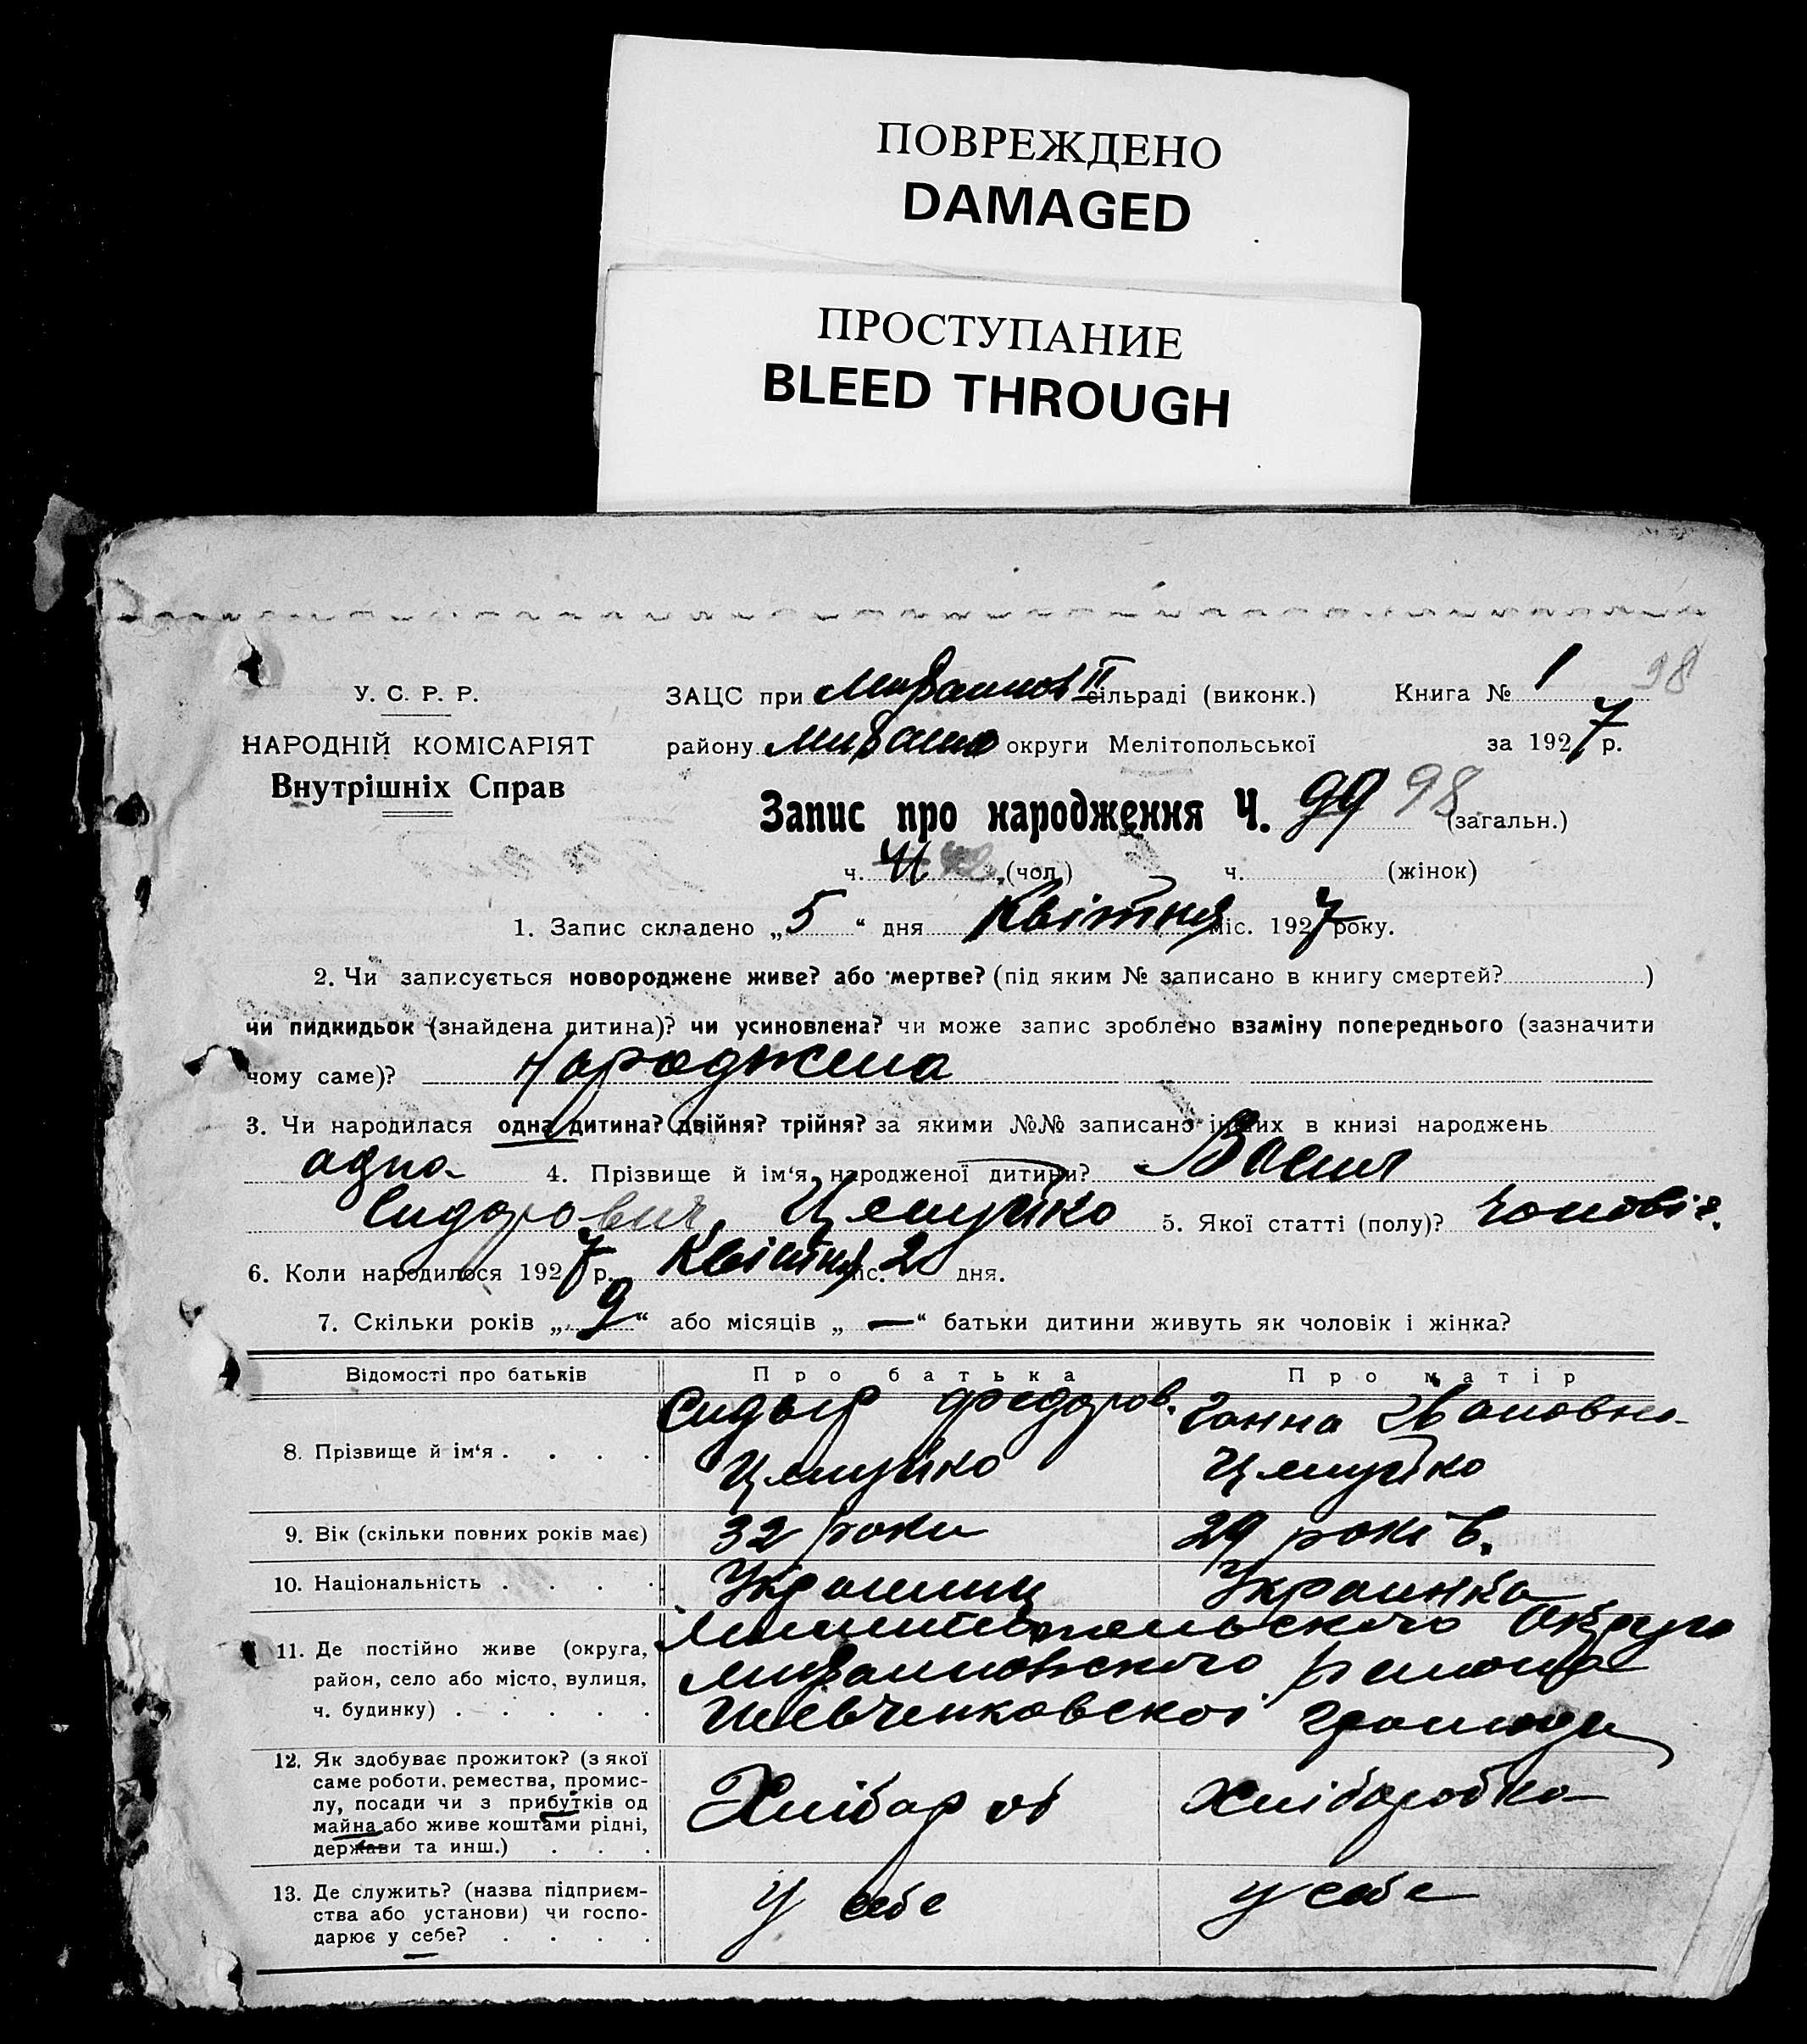 ПОВРЕЖДЕНО
DAMAGED
ПРОСТУПАНИЕ
BLEED THROUGH
У. С. Р. Р.
НАРОДНІЙ КОМІСАРІЯТ
Внутрішніх Справ
ЗАЦС при II сільраді (виконк.) Книга № 1 98
району округи Мелітопольської за 1927 р.
Запис про народження Ч. 99 98 (загальн.)
ч. (чол.) ч. (жінок)
1. Запис складено „5“ дня Квітня міс. 1927 року.
2. Чи записується новороджене живе? або мертве? (під яким № записано в книгу смертей? )
чи пидкидьок (знайдена дитина)? чи усиновлена? чи може запис зроблено взаміну попереднього (зазначити
чому саме)? Народжена
3. Чи народилася одна дитина? двійня? трійня? за якими №№ записано інших в книзі народжень
одна 4. Прізвище й ім‘я народженої дитини? Васил
Сидорович 5. Якої статті (полу)? чоловіч.
6. Коли народилося 1927 р. Квітня міс. 2 дня.
7. Скільки років „9“ або місяців „—“ батьки дитини живуть як чоловік і жінка?
Відомості про батьків Про батька Про матір
8. Прізвище й ім‘я . . . . Сидыр Федоров. Ганна Ивановна
9. Вік (скільки повних років має) 32 роки 29 років.
10. Національність . . . . Украинц Украинка
11. Де постійно живе (округа, район, село або місто, вулиця, ч. будинку) . . . . .
Округа
района
Шевченковской громади
12. Як здобуває прожиток? (з якої
саме роботи, ремества, промис-
лу, посади чи з прибутків од
майна або живе коштами рідні,
держави та инш.) . . . Хлібороб Хліборобка
13. Де служить? (назва підприєм-
ства або установи) чи госпо-
дарює у себе? . . . . У себе У себе